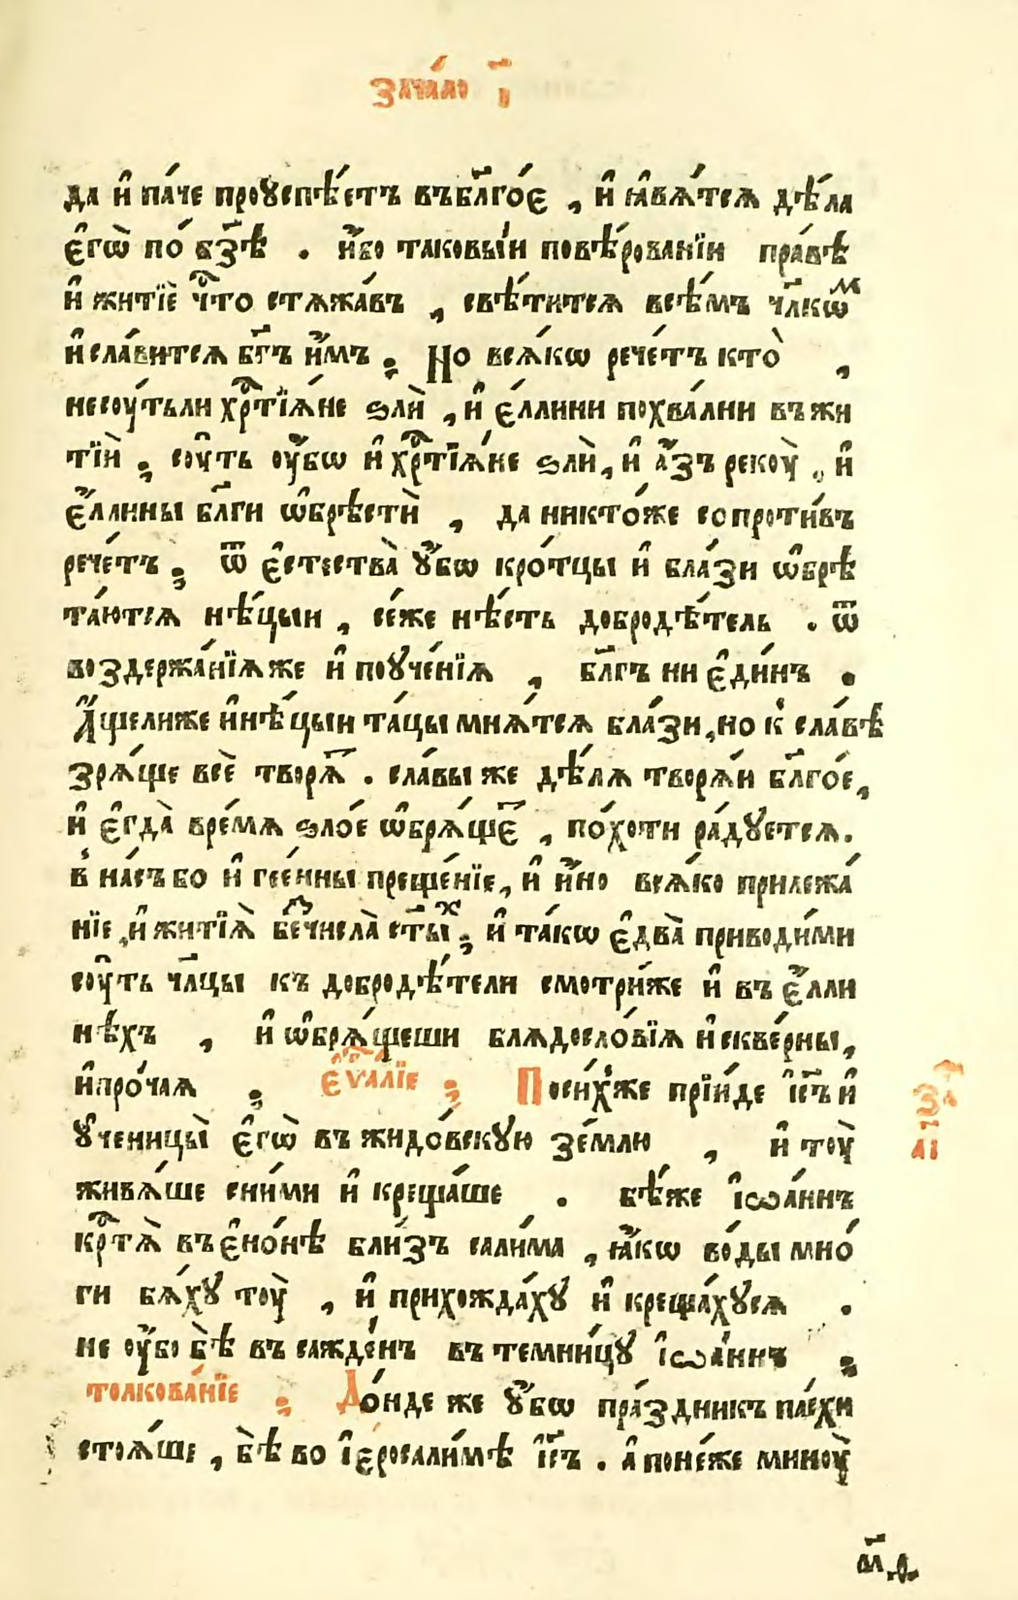 зача́ло і҃
да и҆ па́че проꙋспѣ́етъ въбл҃го́є , и҆ ꙗ҆вѧ́тсѧ дѣ́ла
є҆гѡ̀ по́ бз҃ѣ . и҆́бо таковы́и повѣ́рованїи пра́вѣ
и҆ житїѐ чⷭ҇то стѧжа́въ , свѣ́титсѧ всѣ́мъ чл҃кѡⷨ
и҆сла́витсѧ бг҃ъ и҆́мъ ; Но всѧ́кѡ рече́тъ кто̀ ,
несꙋ́тьли хрⷭ҇тїѧ́не ѕли̑ , и҆ є҆́ллини похва́лни въжи
тїи̑ ; сꙋ́ть ᲂу҆́бѡ и҆ хрⷭ҇тїѧ́не ѕли̑ , и҆ а҆́зъ рекꙋ̀ , и҆
є҆́ллины бл҃ги ѡ҆брѣсти̑ , да никто́же сопроти́въ
рече́тъ ; ѿ є҆стества̀ ᲂу҆́бѡ кро́тцы и҆ бла́зи ѡ҆брѣ
та́ютсѧ нѣ́цыи , се́же нѣ́сть добродѣ́тель . ѿ
воздержа́нїѧже и҆ поꙋче́нїѧ , бл҃гъ ни є҆ди́нъ .
А҆́щелиже и҆нѣ́цыи та́цы мнѧ́тсѧ бла́зи , но к̾ сла́вѣ
зрѧ́ще всѐ творѧ́т . сла́вы же дѣ́лѧ творѧ́и бл҃го́е ,
и҆ є҆гда̀ вре́мѧ ѕло́е ѡ҆брѧ́щеⷮ , по́хоти ра́дꙋетсѧ .
в̾ на́съ бо и҆ гее́нны преще́нїе , и҆ и҆́но всѧ́ко прилежа́
нїе , и҆ житїѧ̀ беⷥчисла̀ ст҃ыⷯ ; и҆ та́кѡ є҆два̀ приводи́ми
сꙋ́ть чл҃цы къ добродѣ́тели смотри́же и҆ въ є҆́лли
нѣхъ , и҆ ѡ҆брѧ́щеши блѧдосло́вїѧ и҆скве́рны ,
и҆про́чаѧ ; є҆ѵⷢ҇а́лїе ; Поси́хже прїи́де і҆с҃ъ и҆
ᲂу҆ченицы̀ є҆гѡ̀ въ жидо́вскꙋю зе́млю , и҆ тꙋ̀
живѧ́ше сни́ми и҆ креща́ше . бѣ́же і҆ѡа́ннъ
крⷭ҇тѧ̀ въ є҆но́нѣ бли́зъ сали́ма , ꙗ҆́кѡ во́ды мно́
ги бѧ́хꙋ тꙋ̀ , и҆ прихожда́хꙋ и҆ креща́хꙋсѧ .
не ᲂу҆́бо бѣ̀ въ сажде́нъ въ темни́цꙋ і҆ѡа́ннъ ;
толкова́нїе ; До́нде же ᲂу҆́бѡ пра́здникъ па́схи
стоѧ́ше , бѣ̀ во і҆еросали́мѣ і҆с҃ъ . а҆ поне́же минꙋ̀
за҄
а҃і